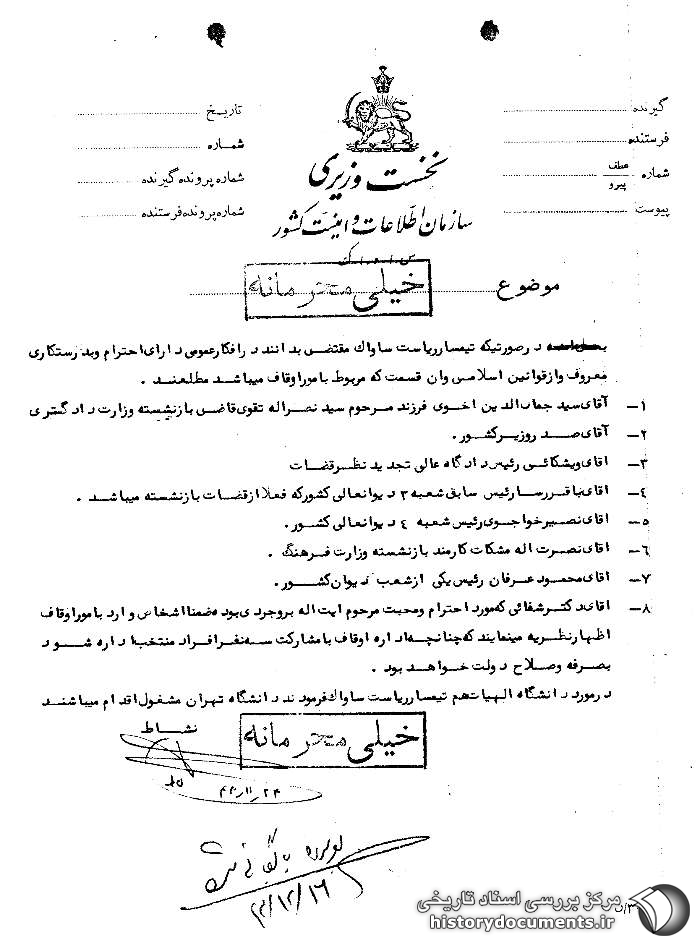 گیرنده
فرستنده
شماره عطف پیرو
پیوست
تاریخ
شماره
شماره پرونده گیرنده
شماره پرونده فرستنده
نخست وزیری
سازمان اطلاعات و امنیت کشور
س.ا.و.ا.ک
موضوع
خیلی محرمانه
در صورتیکه تیمسار ریاست ساواک مقتضی بدانند در افکار عمومی دارای احترام وبدرستکاری
معروف واز قوانین اسلامی وان قسمت که مربوط بامور اوقاف میباشد مطلعند .
۱- آقای سید جمال الدین اخوی فرزند مرحوم سید نصراله تقوی قاضی بازنشسته وزارت دادگستری
۲- آقای صدر وزیر کشور .
۳- اقای ویشکائی رئیس دادگاه عالی تجدید نظر قضات
۴- اقای باقر رسا رئیس سابق شعبه ۳ دیوانعالی کشور که فعلا از قضات بازنشسته میباشد .
۵- اقای نصیر خواجوی رئیس شعبه ۴ دیوانعالی کشور .
۶- اقای نصرت اله مشکات کارمند بازنشسته وزارت فرهنگ .
۷- آقای محمود عرفان رئیس یکی از شعب دیوان کشور .
۸- اقای دکتر شفائی که مورد احترام ومحبت مرحوم ایت اله بروجردی بوده ضمنا اشخاص وارد بامور اوقاف
اظهار نظریه مینمایند که چنانچه اداره اوقاف با مشارکت سه نفر افراد منتخب اداره شود
بصرفه وصلاح دولت خواهد بود .
در مورد دانشگاه الهیات هم تیمسار ریاست ساواک فرمودند دانشگاه تهران مشغول اقدام میباشند
خیلی محرمانه
نشاط
۱۶/۱۲/
مرکز بررسی اسناد تاریخی
historydocuments.ir